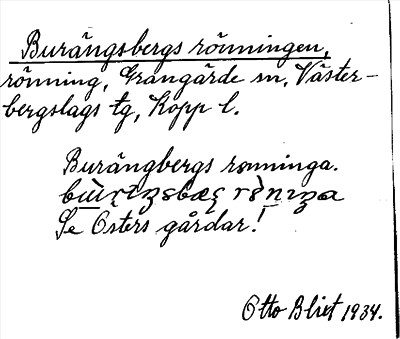 Burängsbergs rönningen,
rönning, Grangärde sn, Väster-
bergslags tg, Kopp l.
Burängbergs rönninga.
Se Osters gårdar!
Otto Blixt 1934.